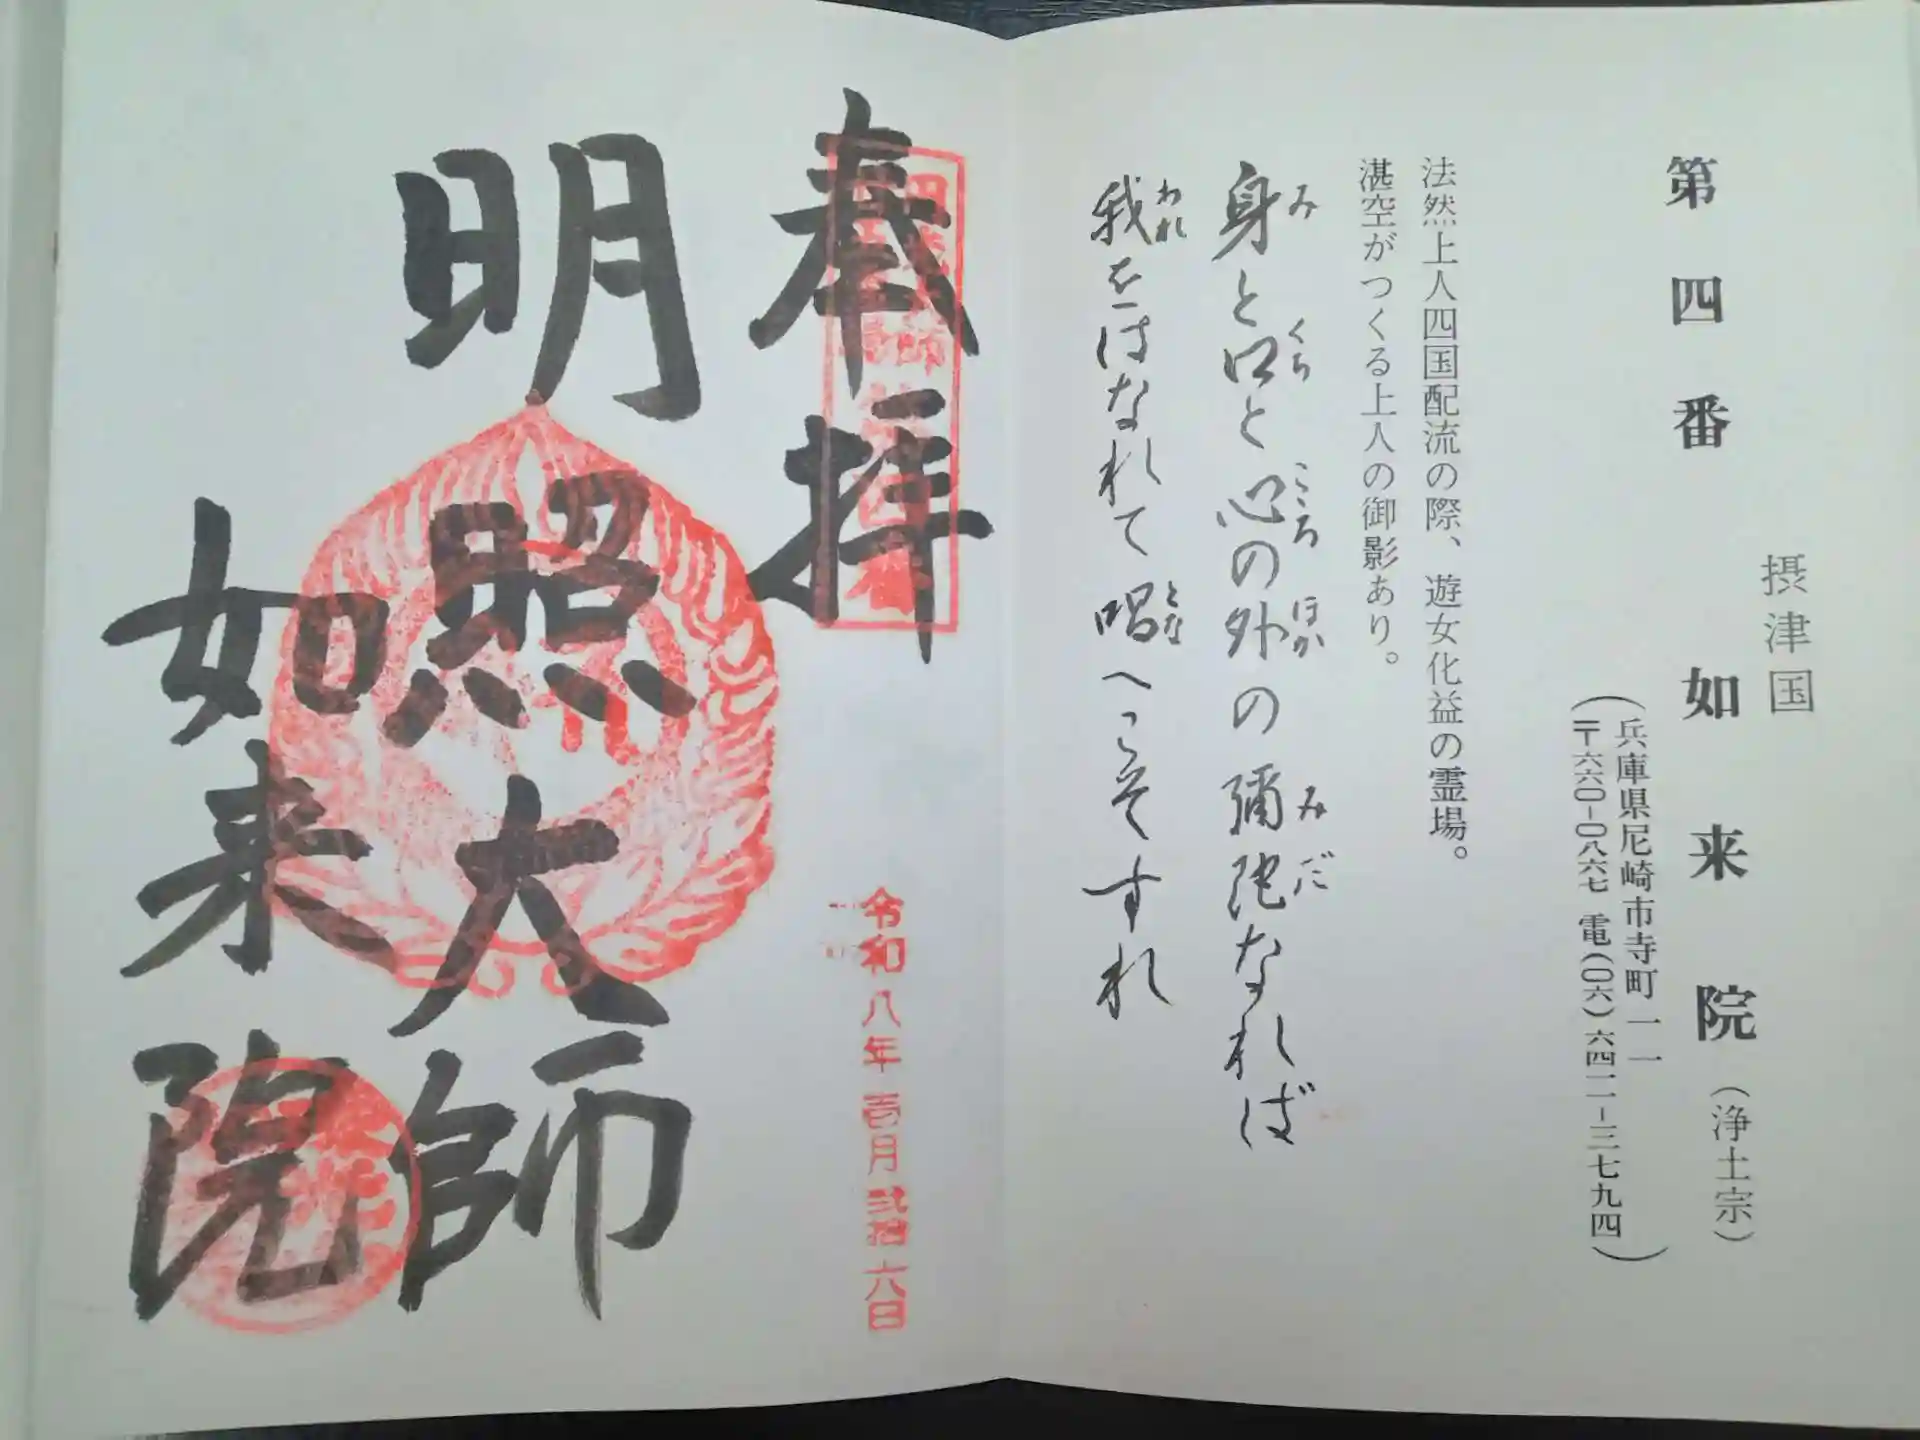 摂津国
第四番 如来院(浄土宗)
(兵庫県尼崎市寺町一一
〒六六〇-〇八六七 電(〇六)六四一一-三七九四)
法然上人四国配流の際、遊女化益の霊場。
湛空がつくる上人の御影あり。
身と口と心の外の彌陀なれば
み くち こころ ほか みだ
我をはなれて唱へこそすれ
われ とな
奉拝
令和八年壱月弐拾六日
明照大師
如来院